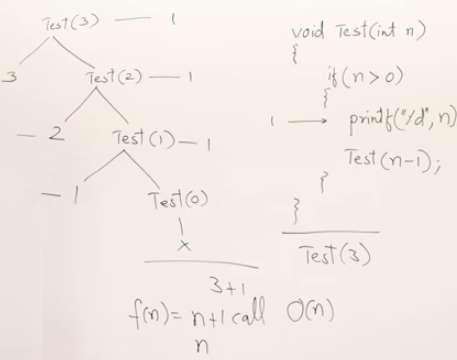 Test(3) — 1
3 Test(2) — 1
— 2 Test(1) — 1
— 1 Test(0)
x
3+1
f(n) = n+1 call O(n)
n
void Test(int n)
{
if(n>0)
{
1 → printf("%d", n)
Test(n-1);
}
}
Test(3)